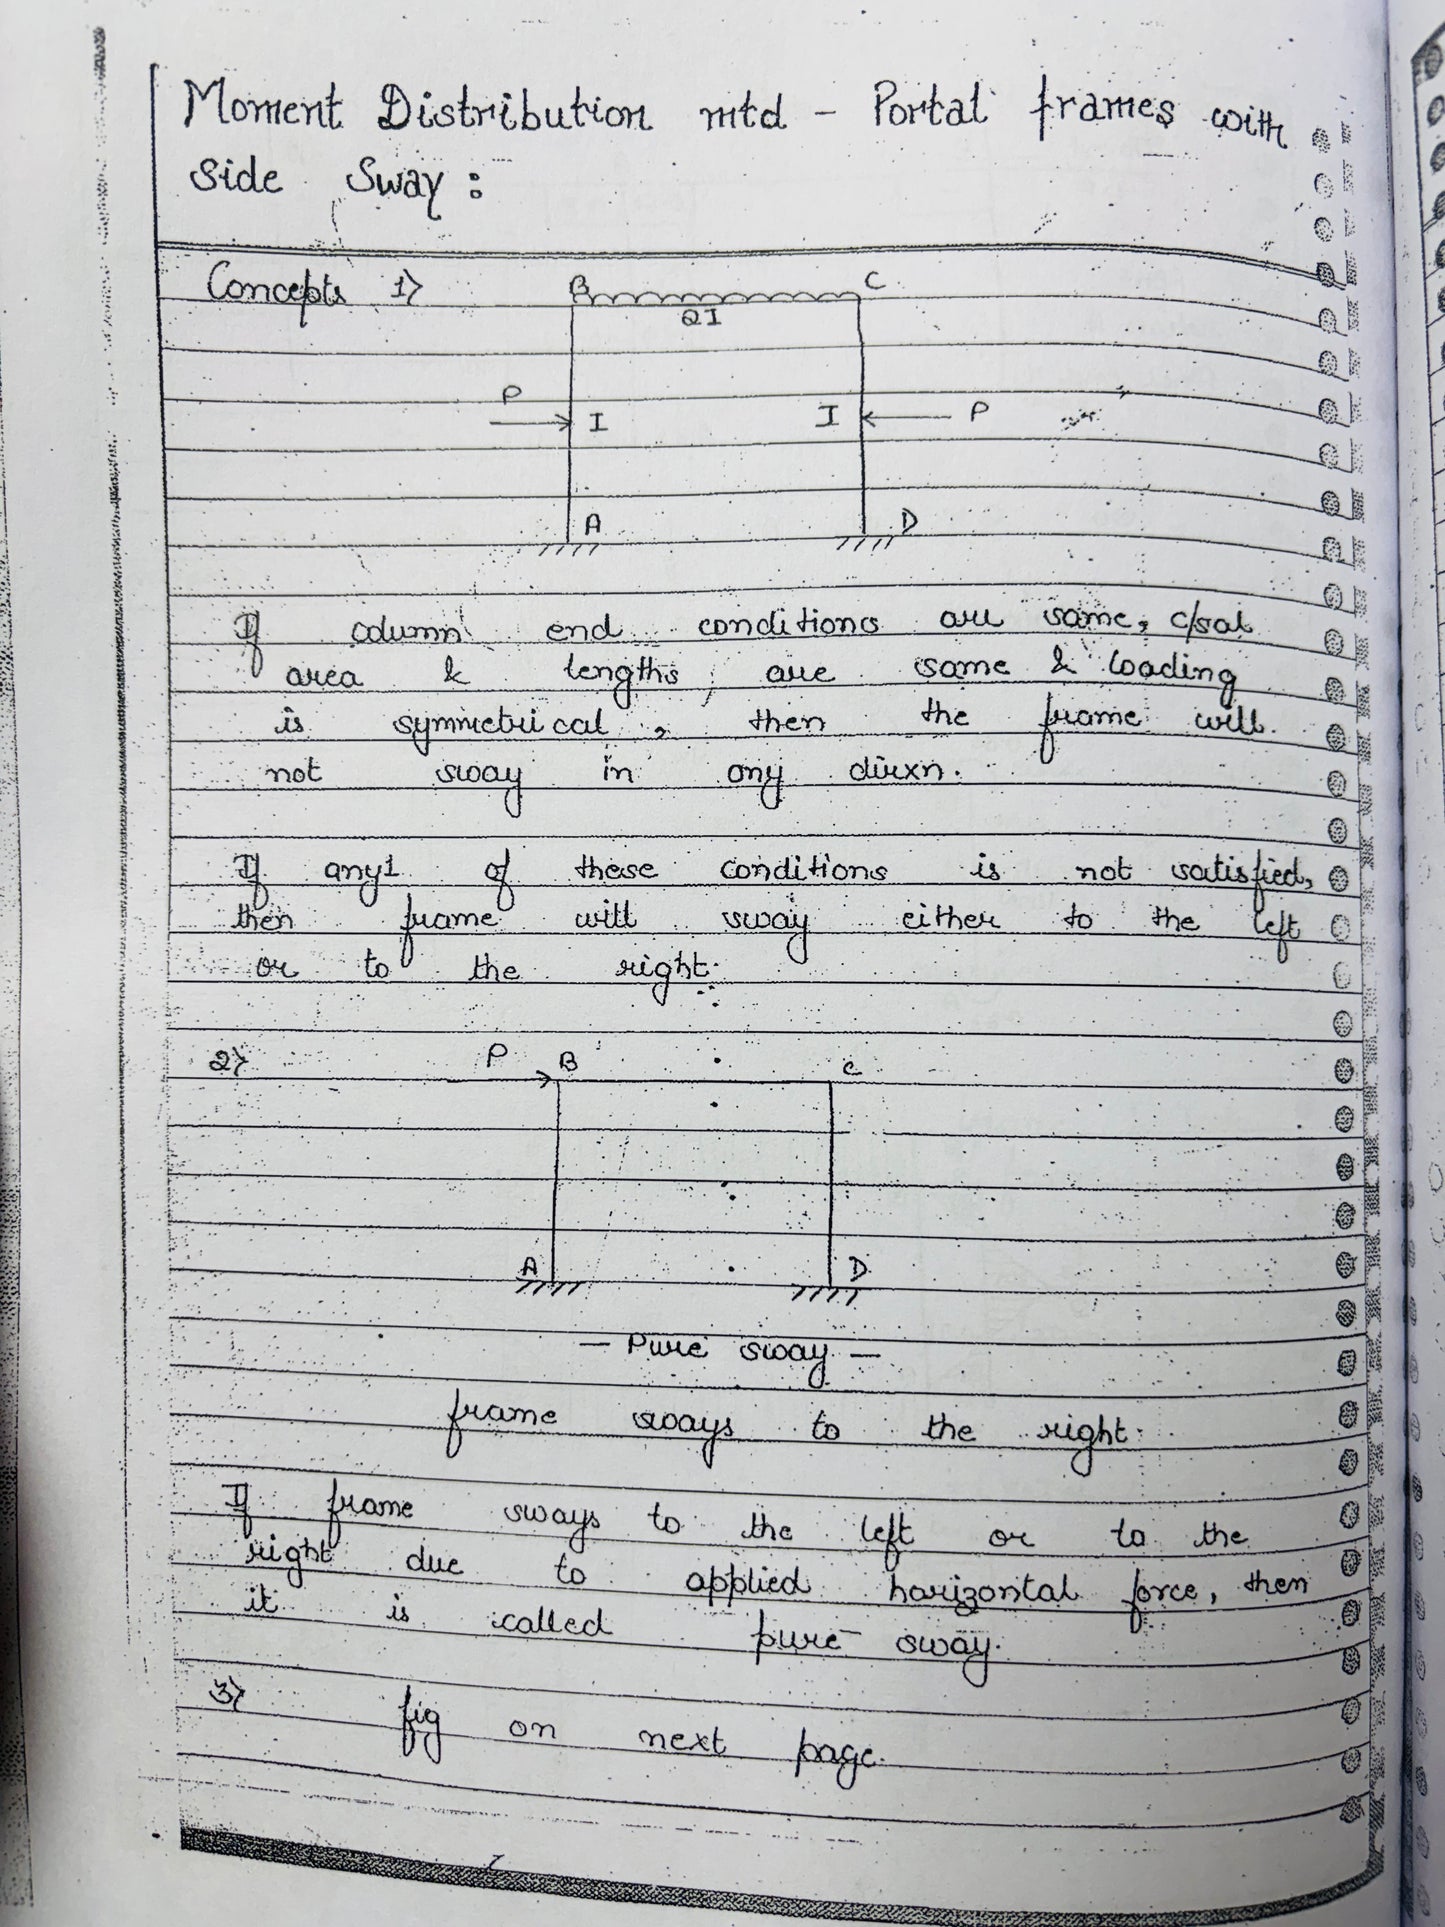 Moment Distribution mtd - Portal frames with
side Sway:
Concepts 1>
B C
2I
P I I P
A D
If column end conditions are same, c/sal
area & lengths are same & loading
is symmetrical, then the frame will
not sway in any dirxn.
If any1 of these conditions is not satisfied,
then frame will sway either to the left
or to the right.
2> P B C
A D
- Pure sway -
frame sways to the right.
If frame sways to the left or to the
right due to applied horizontal force, then
it is called pure sway.
3> fig on next page.